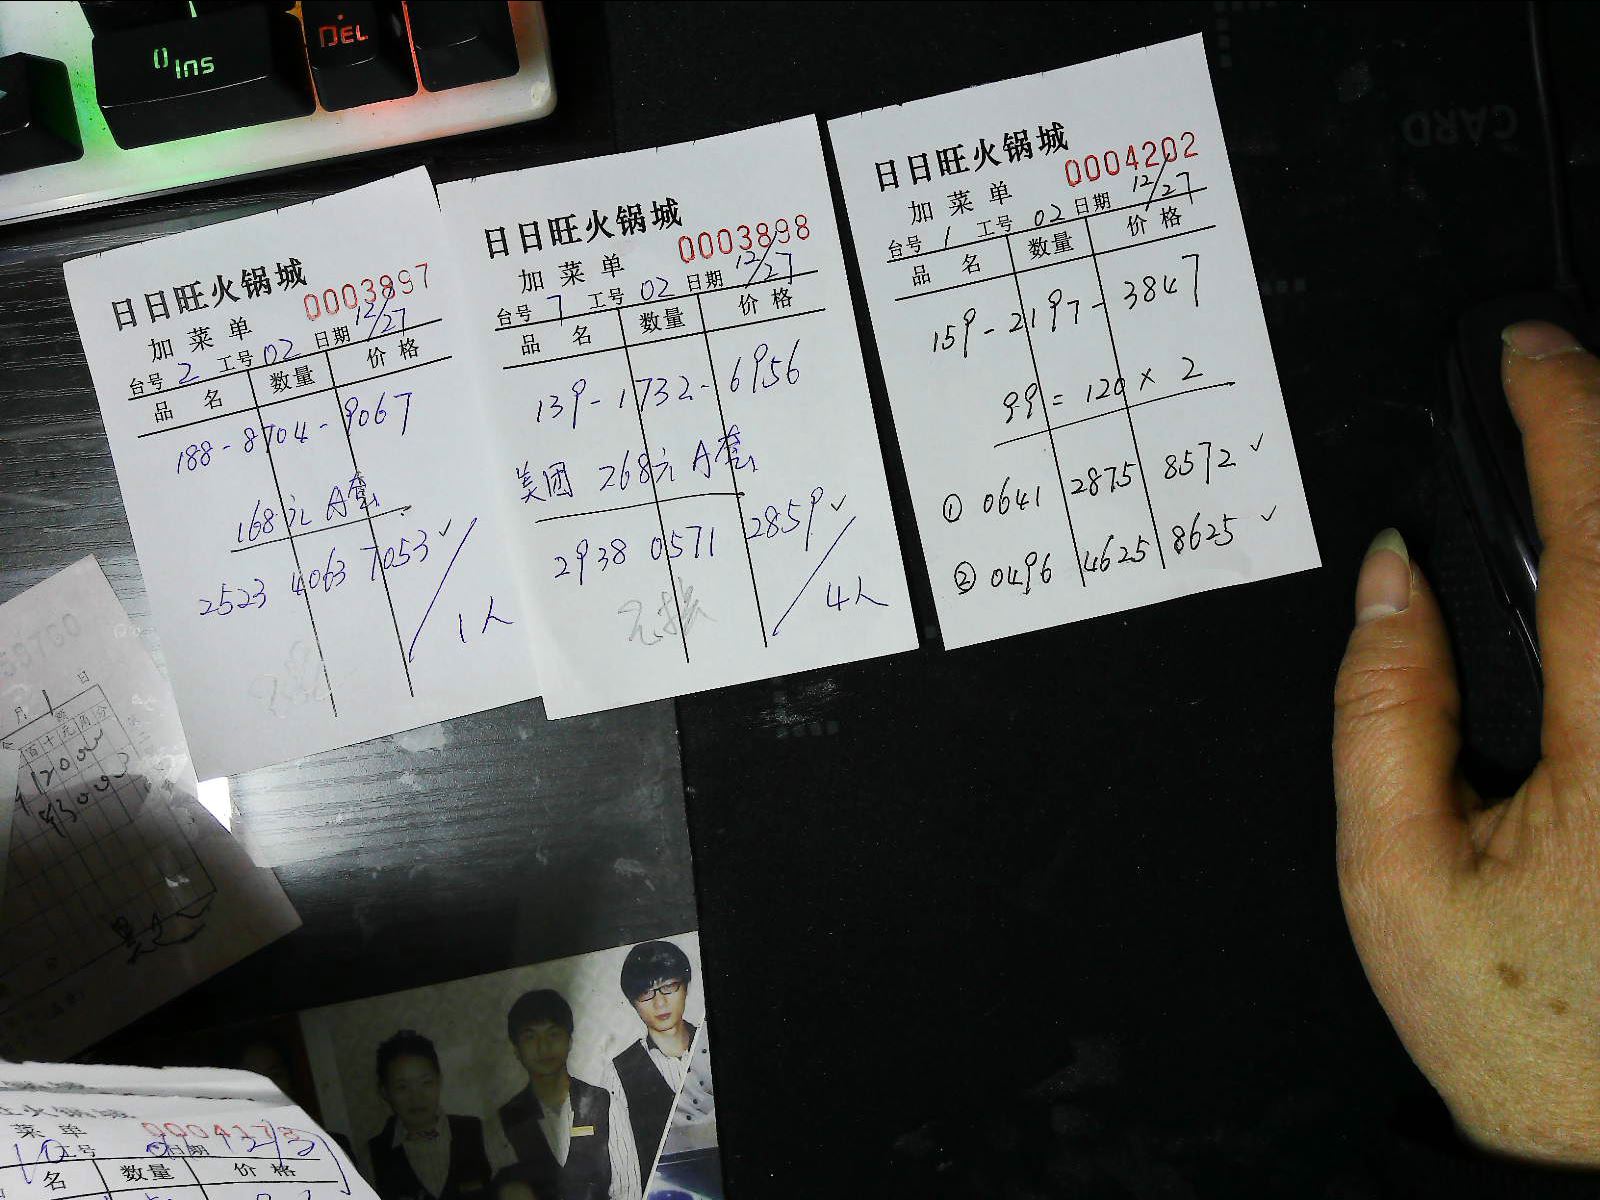 0
Ins
DEL
CARD
日日旺火锅城
0003897
加菜单
台号 2 工号 02 日期 12/27
品 名 数量 价格
188-8704-9067
168元 A套
2523 4063 7053 ✓
1人
日日旺火锅城
0003898
加菜单
台号 7 工号 02 日期 12/27
品 名 数量 价格
139-1732-6956
美团 268元 A套
2938 0571 2859 ✓
4人
日日旺火锅城
0004202
加菜单
台号 1 工号 02 日期 12/27
品 名 数量 价格
159-2197-3847
99=120×2
① 0641 2875 8572 ✓
② 0496 4625 8625 ✓
月 日
百十元角分
火锅城
菜单
工号 日期
名 数量 价格